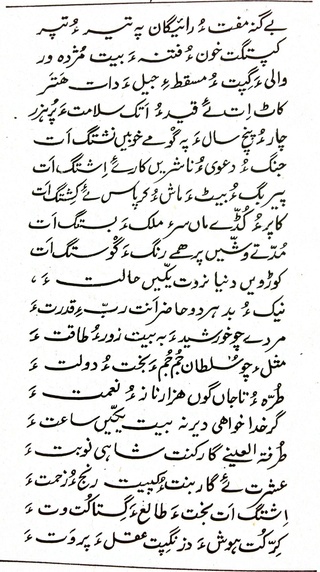 بے گنہ مفت ءُ رائیگان پہ تیر ءُ تپر
کپتگت خون ءُ فتنہ ءَ بیت مُژدہ ور
والی ءَ گپت ءُ مسقط ءِ جیل ءَ دات
کاٹ اِت ئے قید ءُ اتک سلامت ءَ
چار ءُ پنچ سال ءَ پہ گومے خوبیں نشتگ اَت
جنگ ءُ دعوی ءُ ناشریں کار ئے اِشتگ اَت
پیر بگ ءُ بیٹ ءَ ماش ءُ کرپاس ئے کِشتگ اَت
کاپر ءُ کُڈّے ماں سرءِ ملک ءَ بستگ اَت
مُدّتے وشّیں پر ھمے رنگ ءَ گوستگ اَت
کوڑویں دنیا نزوت یکّیں حالت ءَ ،
نیک ءُ بد ہر دو حاضر اَنت ربّ ءِ قدرت ءَ
مردے چو خورشید ءَ بہ بیت زور ءُ طاقت ءَ
مثل ءِ چو سُلطان جُم جُم ءَ بخت ءُ دولت ءَ
طُرّہ ءُ تاجاں گوں ھزار ناز ءُ نعمت ءَ
گر خدا خواھی دیر نہ بیت یکّیں ساعت ءَ
طُرفۃ العینے گار کنت شاہی نوبت ءَ
عشرت ئے گار بنت ءُ کپیت رنج ءُ زحمت ءَ
اِشتگ اَت بخت ءَ طالع ءَ گستاکُت وت ءَ
کِرّ کُت ہوش ءَ دز نگپت عقل ءَ پروت ءَ